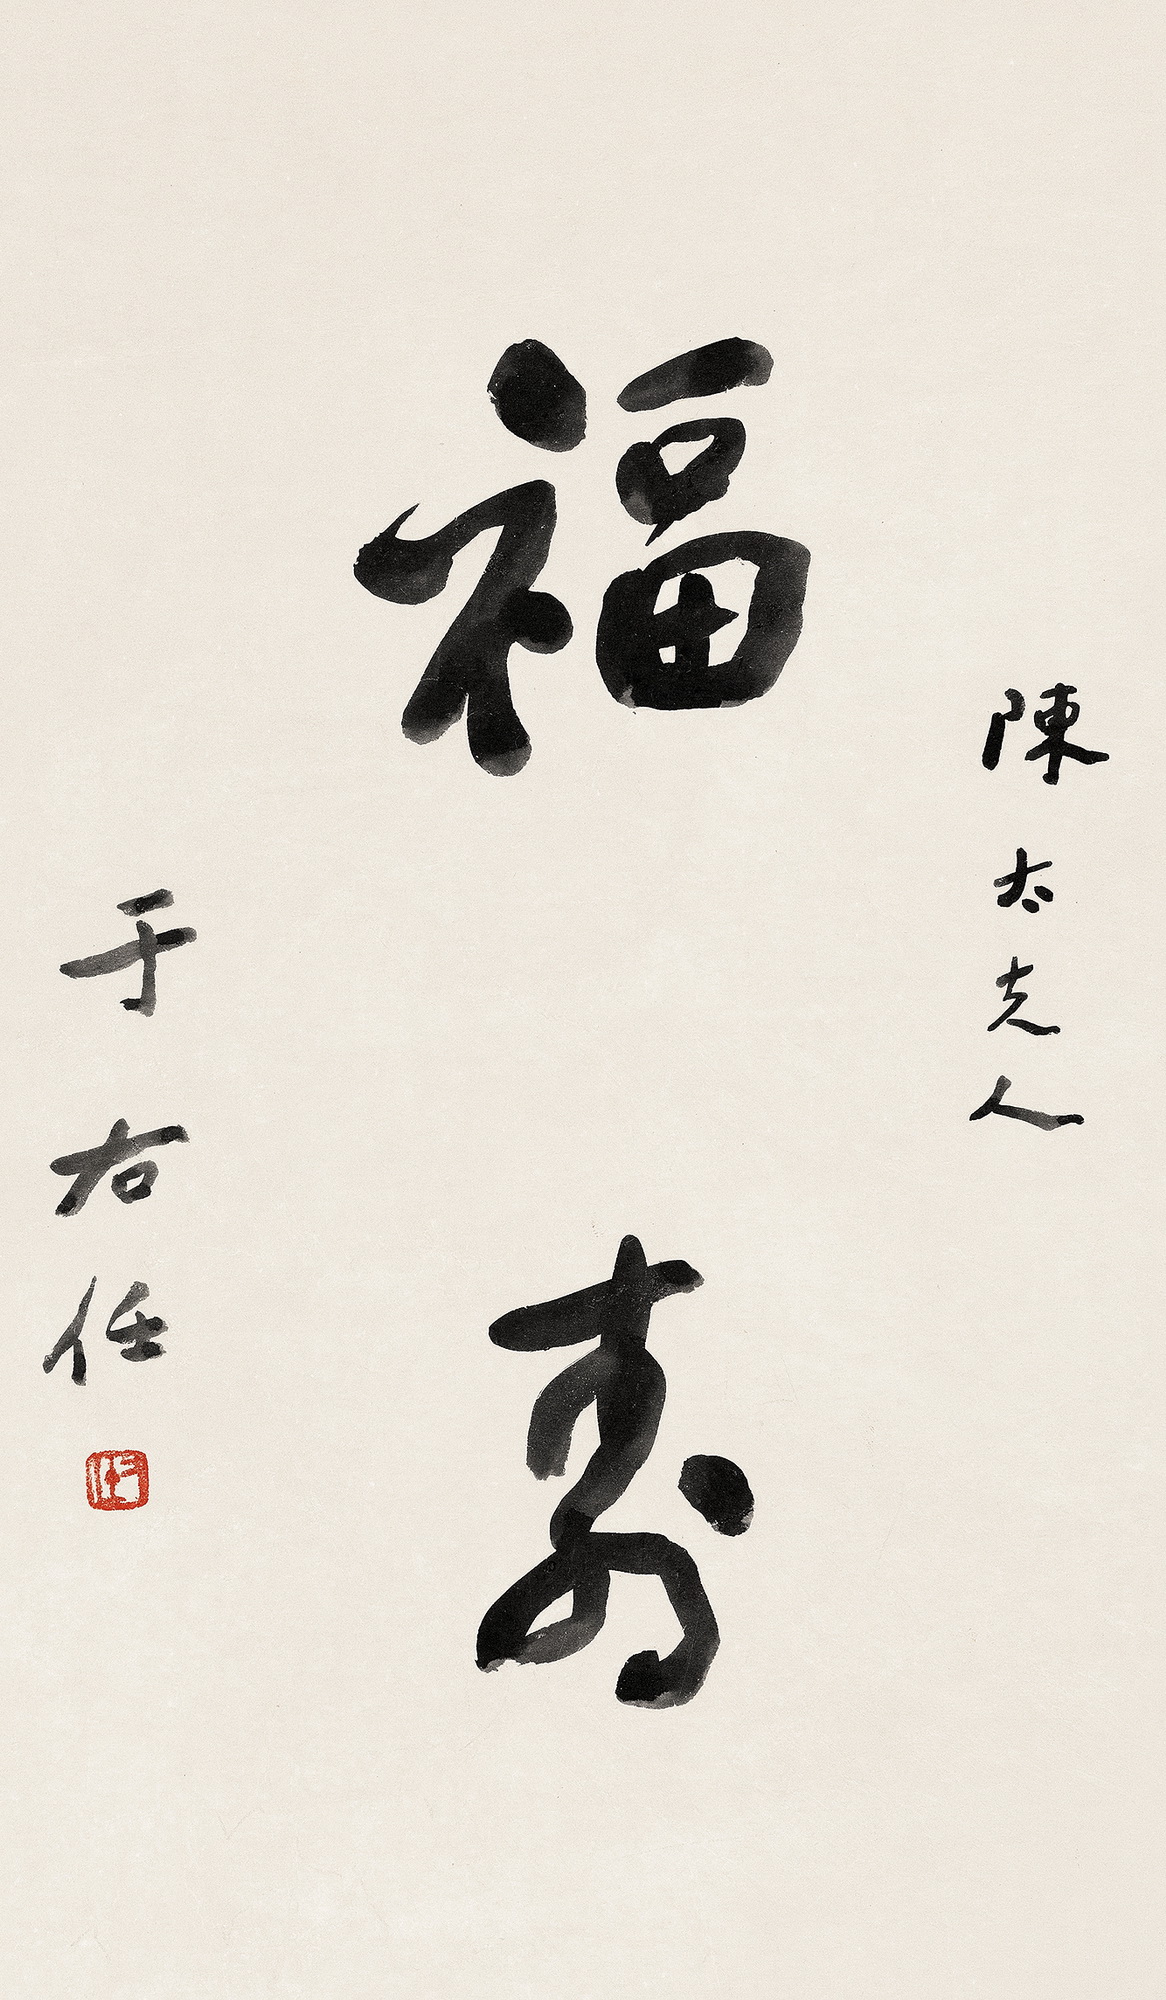 陳太夫人
福壽
于右任